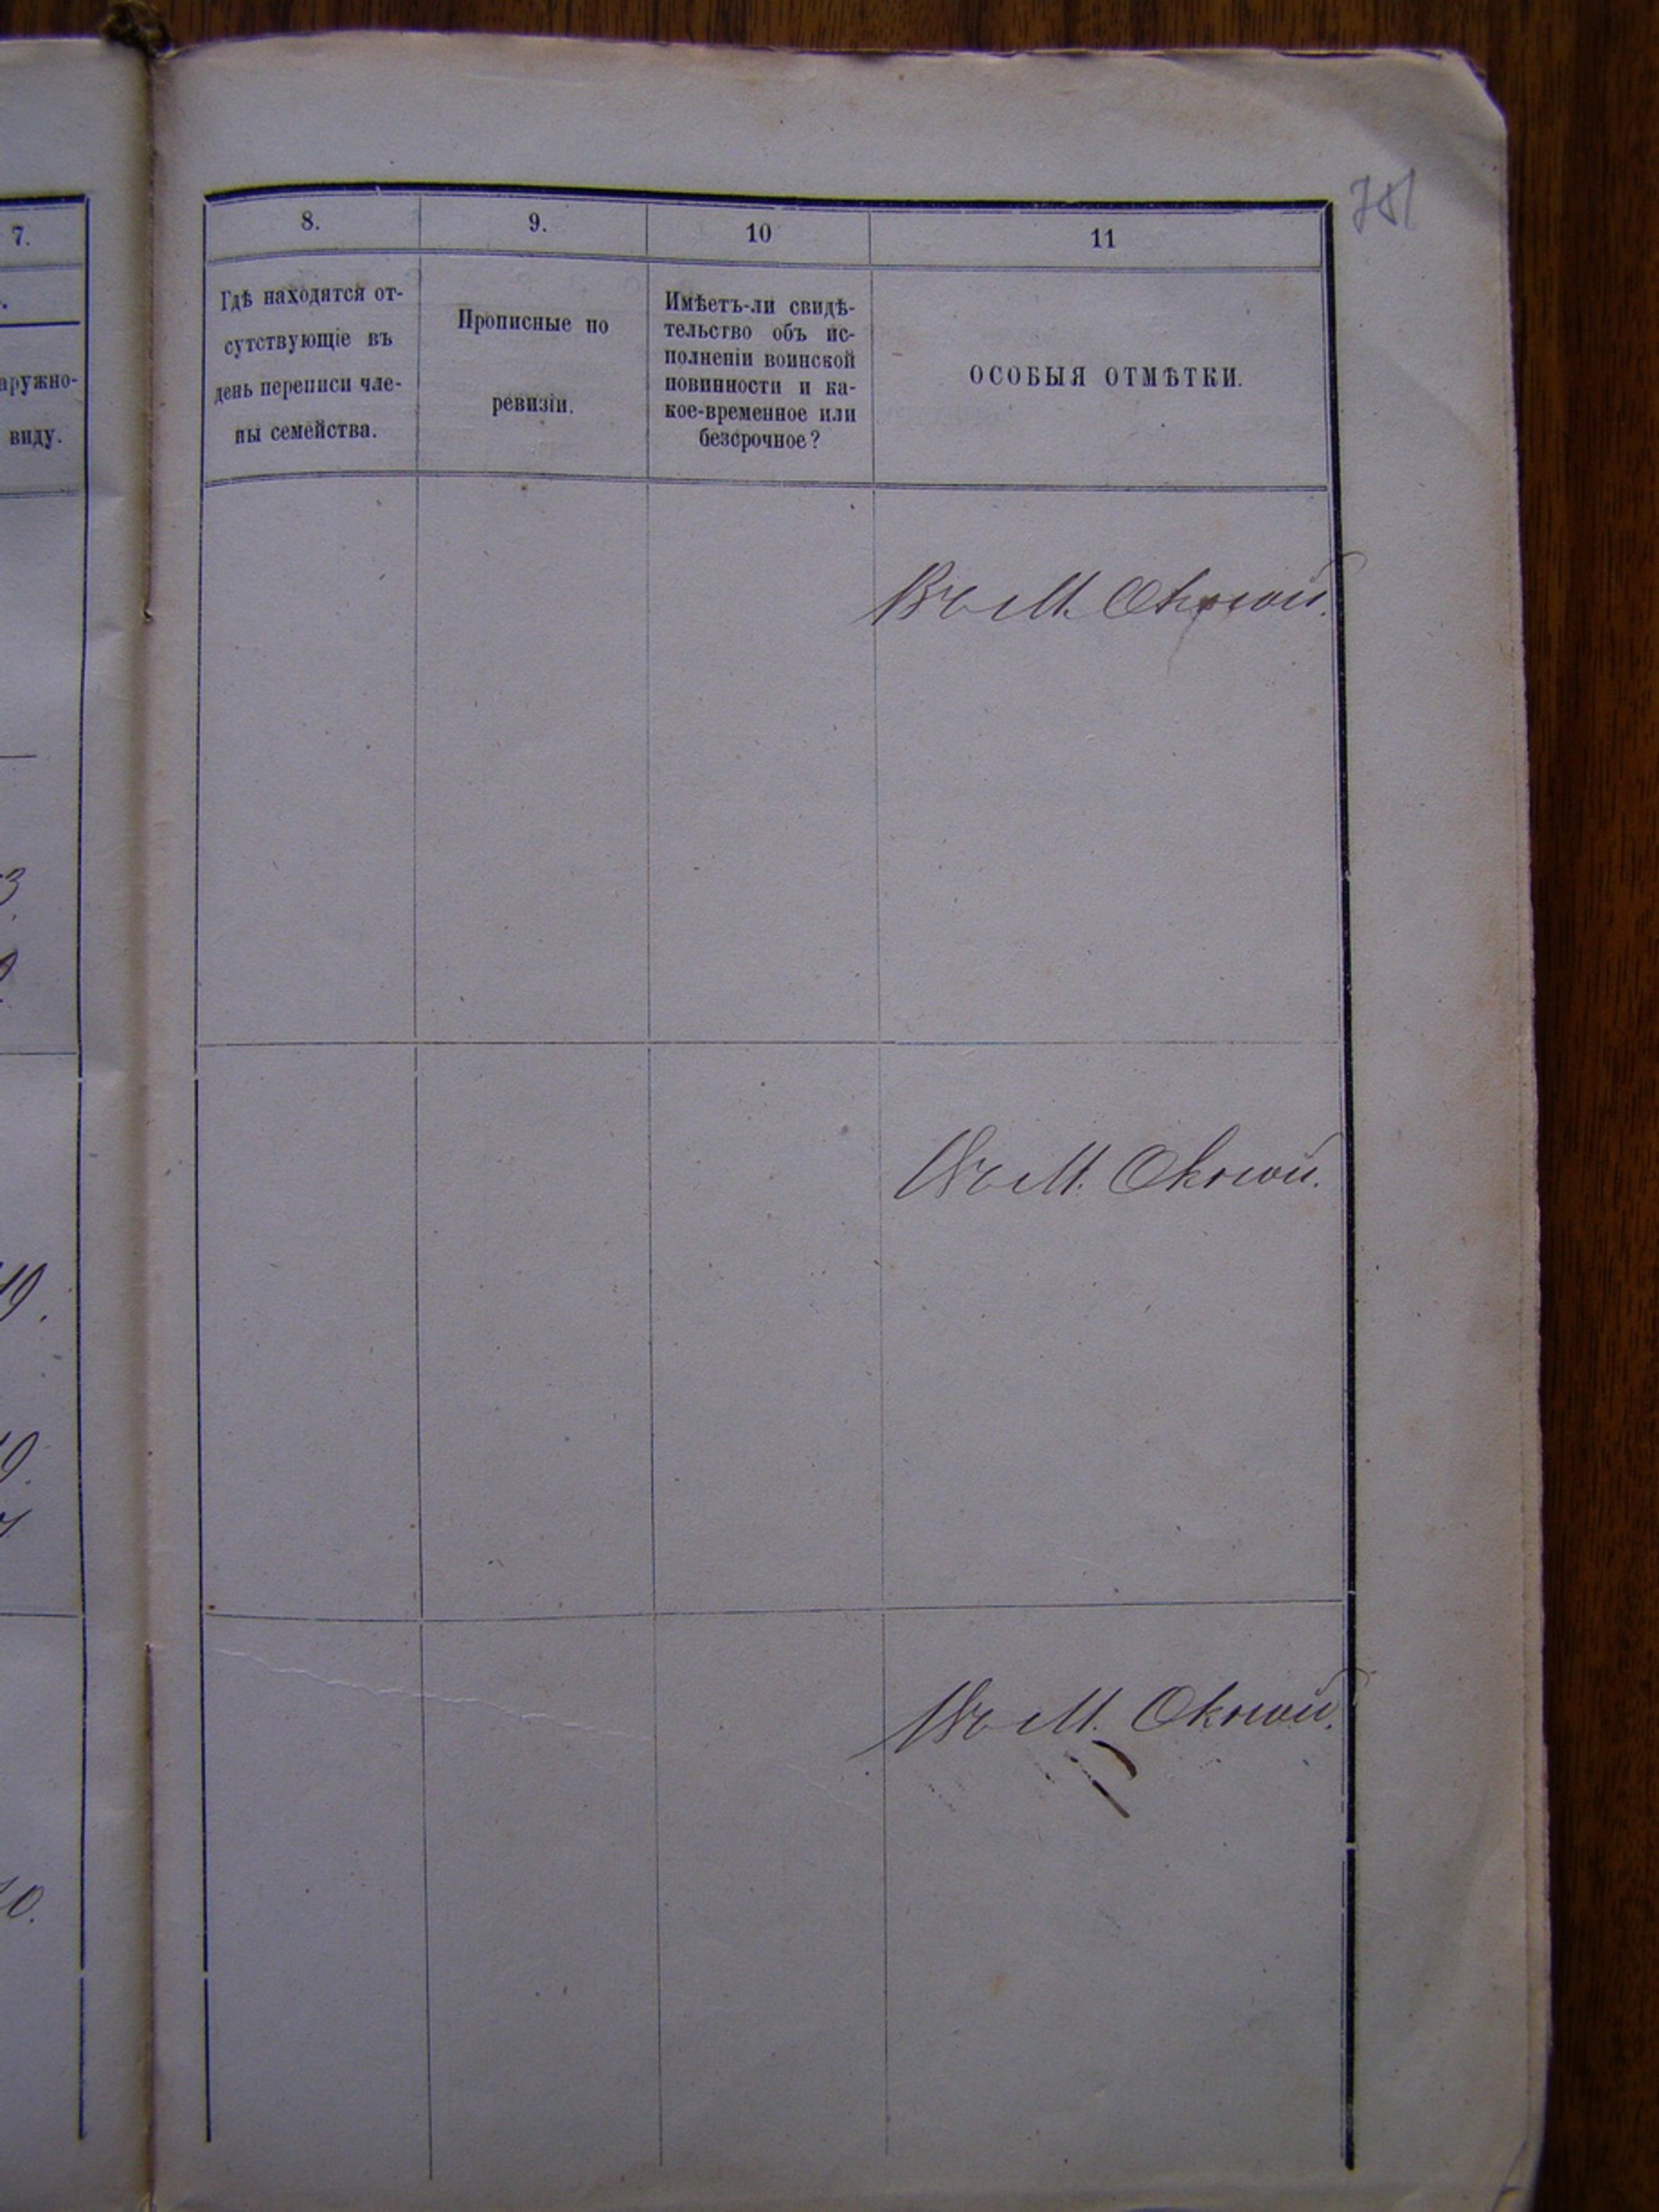 781
7.
8.
9.
10
11
.
аружно-
виду.
Гдѣ находятся от-
сутствующіе въ
день переписи чле-
ны семейства.
Прописные по
ревизіи.
Имѣетъ-ли свидѣ-
тельство объ ис-
полненіи воинской
повинности и ка-
кое-временное или
безсрочное?
ОСОБЫЯ ОТМѢТКИ.
Въ М. Окной.
3
Въ М. Окной.
19.
Въ М. Окной.
10.